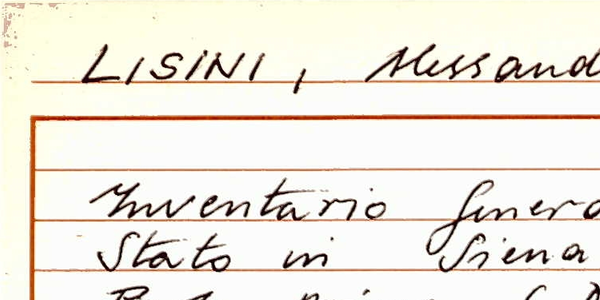 LISINI, Alessand
Inventario genera
Stato in Siena